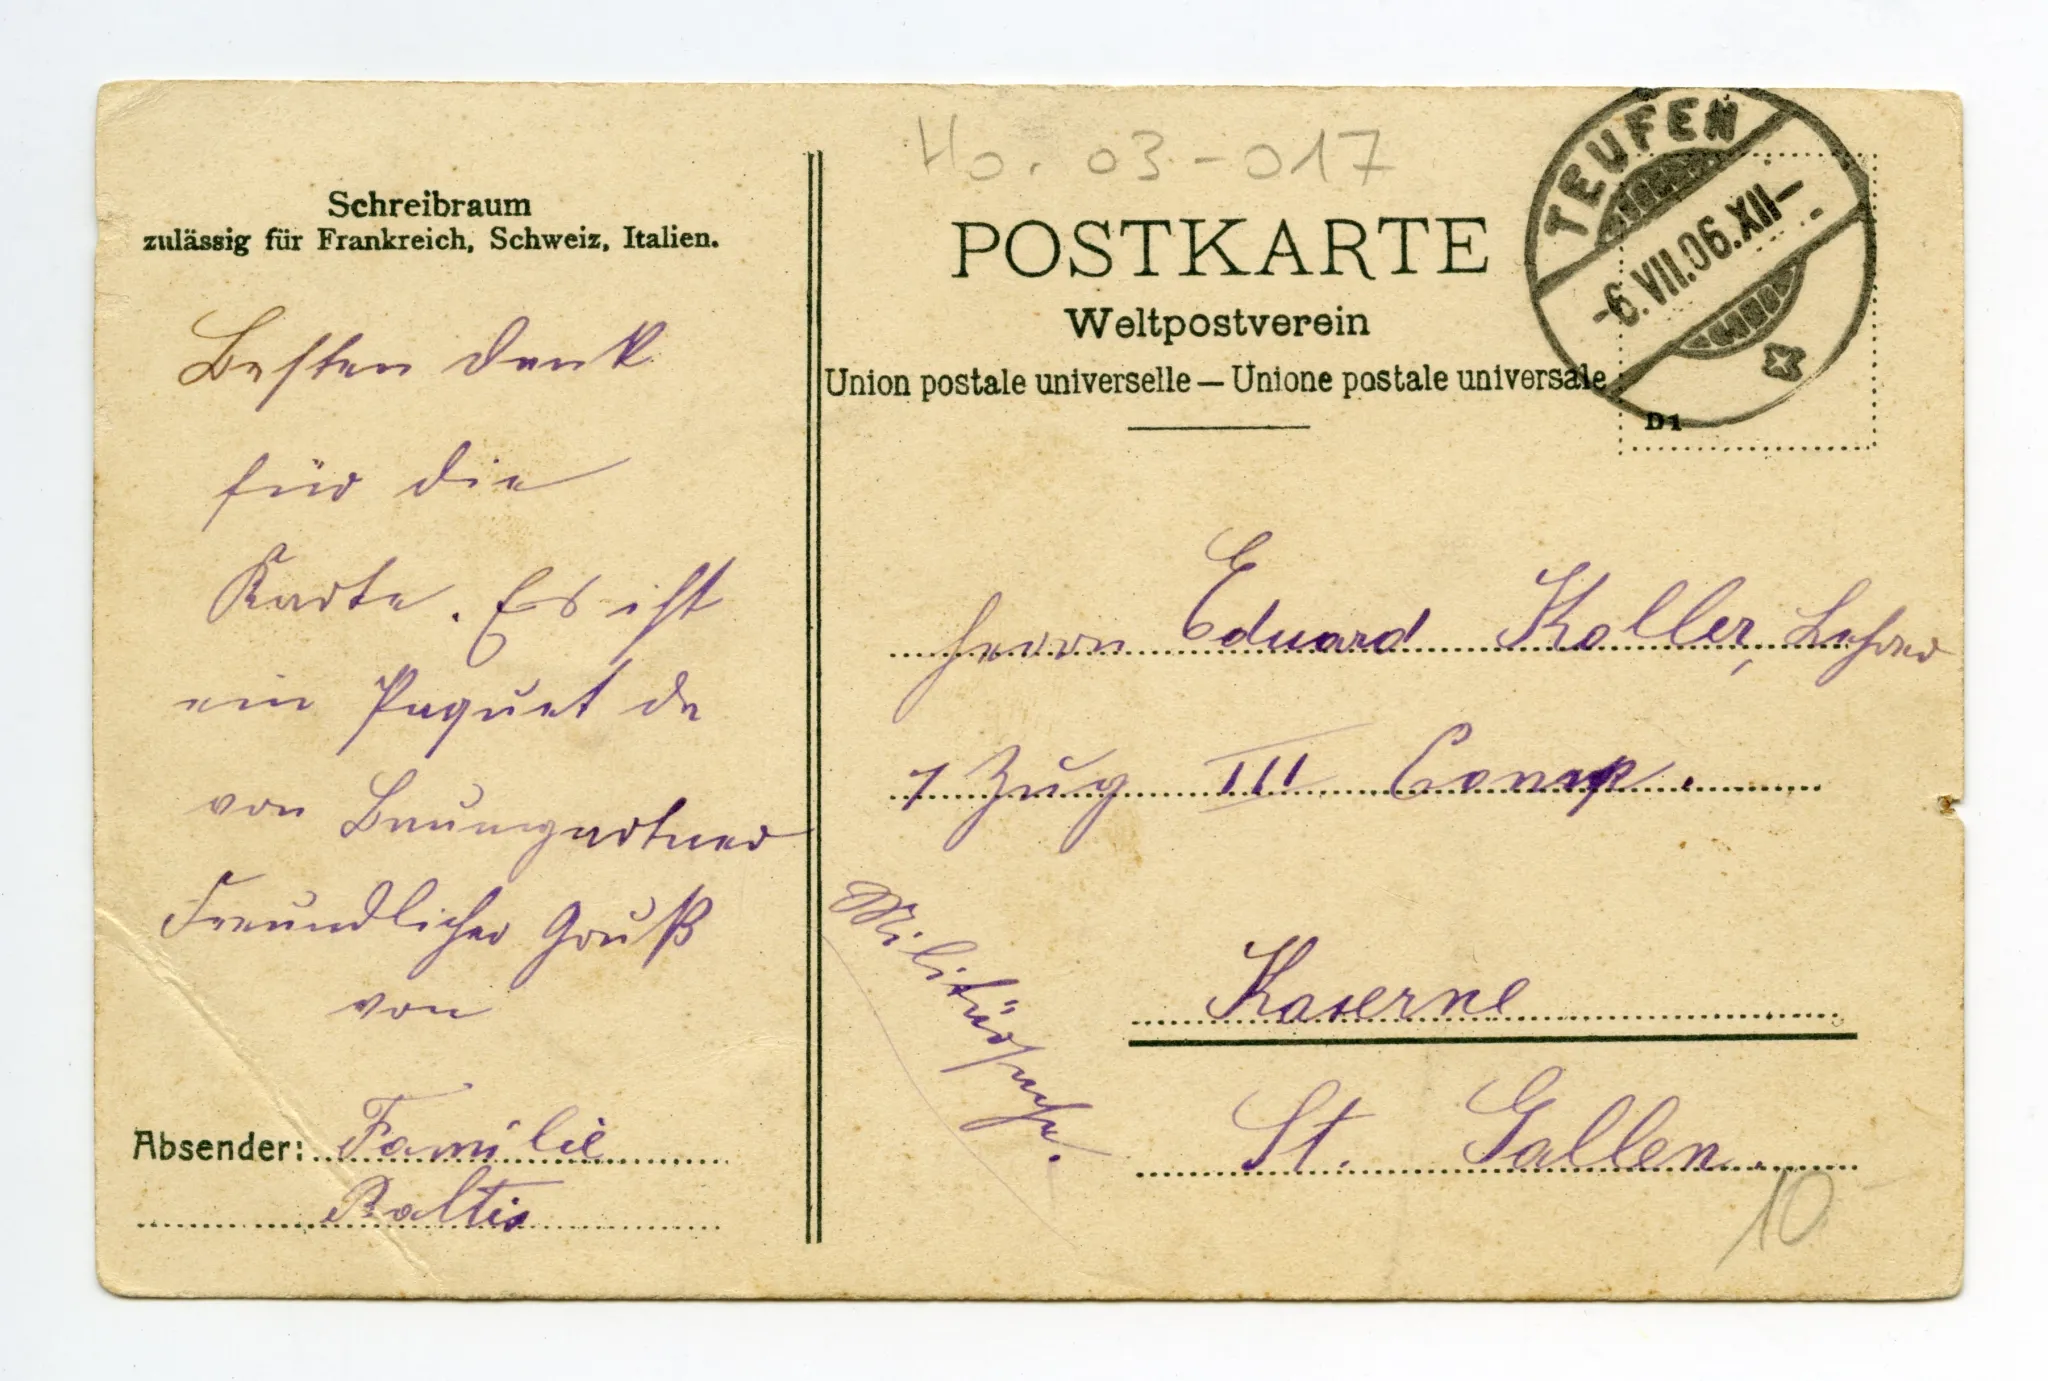 Schreibraum
zulässig für Frankreich, Schweiz, Italien.
Besten Dank
für die
Karte. Es ist
ein Paquet da
von Baumgartner
Freundlicher Gruß
von
Absender: Familie
Ho. 03-017
POSTKARTE
Weltpostverein
Union postale universelle — Unione postale universale
TEUFEN
-6.VIII.06.XII-
D1
Herrn Eduard Koller, Lehrer
1 Zug III Comp.
Militärsache.
Kaserne
St. Gallen.
10